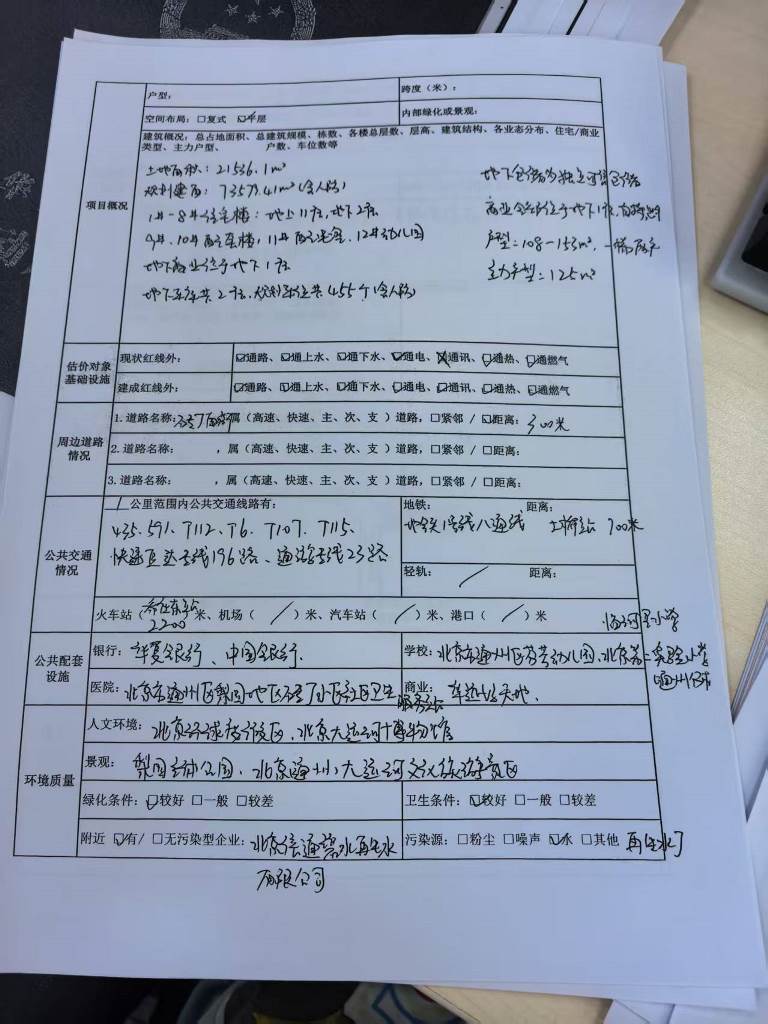 户型:
跨度（米）:
空间布局: □复式 ☑平层
内部绿化或景观:
项目概况
建筑概况: 总占地面积、总建筑规模、栋数、各楼总层数、层高、建筑结构、各业态分布、住宅/商业
类型、主力户型、 户数、车位数等
土地面积: 21536.1m²
规划建面: 73579.41m²(含人防)
1#-8#住宅楼: 地上11层,地下2层
9#、10#配套楼, 11# 12#幼儿园
地下商业位于地下1层
地下车库共2层, 规划车位共455个(含人防)
地下仓储为独立可售仓储
商业 位于地下1层,
户型: 108-153m², 一梯两户
主力户型: 125m²
估价对象
基础设施
现状红线外: ☑通路、☑通上水、☑通下水、☑通电、☑通讯、☑通热、☑通燃气
建成红线外: ☑通路、☑通上水、☑通下水、☑通电、☑通讯、☑通热、☑通燃气
周边道路
情况
1.道路名称: 属（高速、快速、主、次、支 ）道路, □紧邻 / ☑距离: 300米
2.道路名称: ,属（高速、快速、主、次、支 ）道路, □紧邻 / □距离:
3.道路名称: ,属（高速、快速、主、次、支 ）道路, □紧邻 / □距离:
公共交通
情况
1 公里范围内公共交通线路有:
435、591、T112、T6、T107、T115、
快速直达专线196路、通游专线23路
地铁: 距离:
地铁1号线八通线 土桥站 700米
轻轨: / 距离:
火车站（乔庄东站 2200）米、机场（ / ）米、汽车站（ / ）米、港口（ / ）米
公共配套
设施
银行: 华夏银行、中国银行.
学校: 北京市通州区芬芳幼儿园、北京第二实验小学
通州分校
临河里小学
医院: 北京市通州区梨园地区 社区卫生
服务站
商业: 车边坡天地.
环境质量
人文环境: 北京环球度假区、北京大运河博物馆
景观: 梨园主题公园、北京(通州)大运河文化旅游景区
绿化条件: ☑较好 □一般 □较差
卫生条件: ☑较好 □一般 □较差
附近 ☑有/ □无污染型企业: 北京信通碧水再生水
有限公司
污染源: □粉尘 □噪声 ☑水 □其他 再生水厂